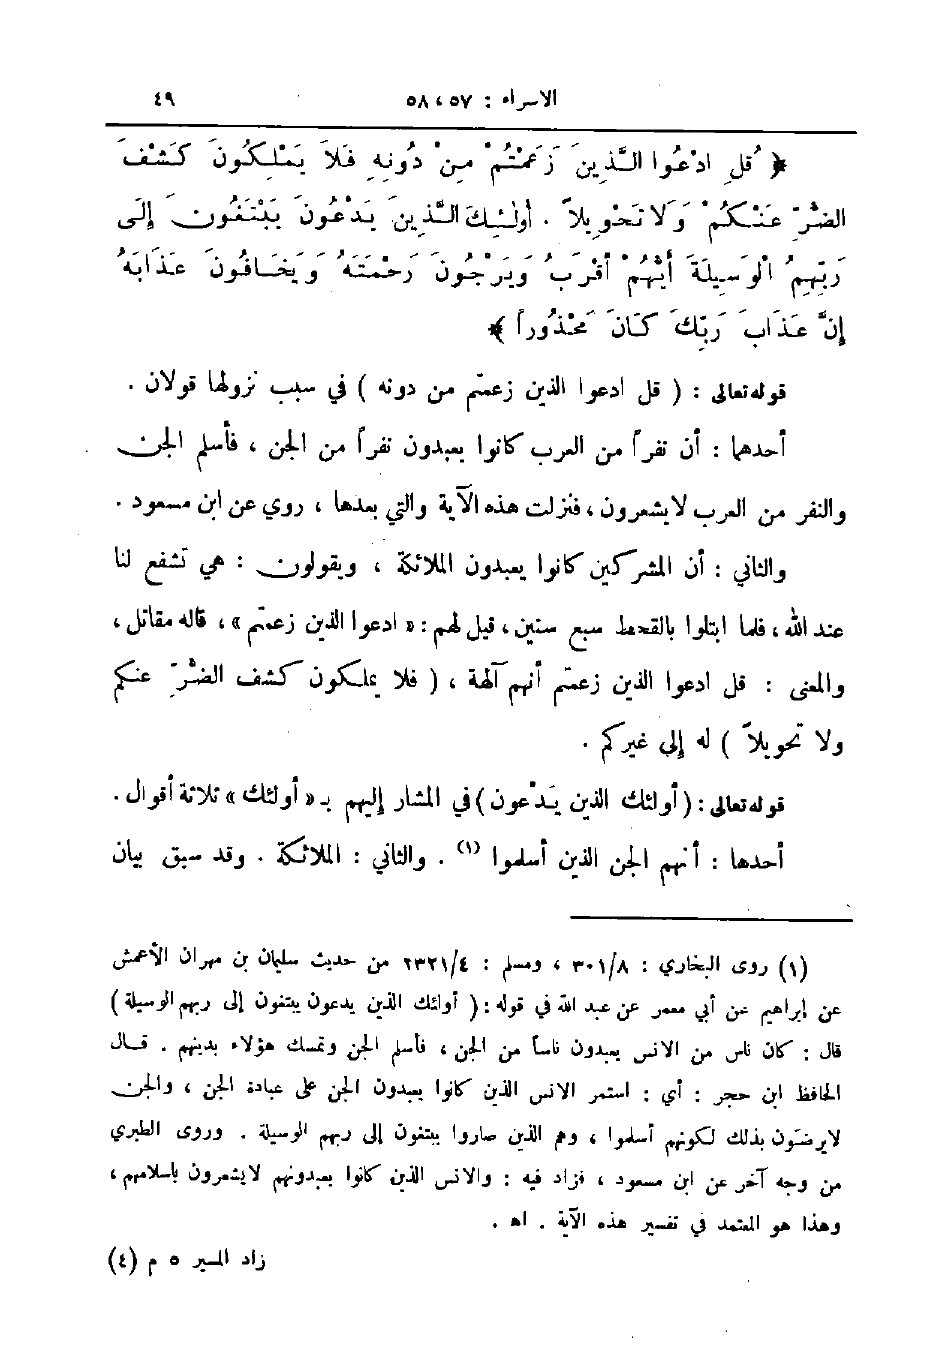 الاسراء : ٥٧ ، ٥٨ ٤٩
﴿ قُلِ ادْعُوا الَّذِينَ زَعَمْتُمْ مِنْ دُونِهِ فَلَا يَمْلِكُونَ كَشْفَ
الضُّرِّ عَنْكُمْ وَلَا تَحْوِيلاً . أُولٰئِكَ الَّذِينَ يَدْعُونَ يَبْتَغُونَ إِلَى
رَبِّهِمُ الْوَسِيلَةَ أَيُّهُمْ أَقْرَبُ وَيَرْجُونَ رَحْمَتَهُ وَيَخَافُونَ عَذَابَهُ
إِنَّ عَذَابَ رَبِّكَ كَانَ مَحْذُوراً ﴾
قوله تعالى : ( قل ادعوا الذين زعمتم من دونه ) في سبب نزولها قولان .
أحدهما : أن نفراً من العرب كانوا يعبدون نفراً من الجن ، فأسلم الجن
والنفر من العرب لا يشعرون ، فنزلت هذه الآية والتي بعدها ، روي عن ابن مسعود .
والثاني : أن المشركين كانوا يعبدون الملائكة ، ويقولون : هي تشفع لنا
عند الله ، فلما ابتلوا بالقحط سبع سنين ، قيل لهم : « ادعوا الذين زعمتم » ، قاله مقاتل ،
والمعنى : قل ادعوا الذين زعمتم أنهم آلهة ، ( فلا يملكون كشف الضُّرِّ عنكم
ولا تحويلاً ) له إلى غيركم .
قوله تعالى : ( أولئك الذين يَدْعون ) في المشار إليهم بـ « أولئك » ثلاثة أقوال .
أحدها : أنهم الجن الذين أسلموا (١) . والثاني : الملائكة . وقد سبق بيان
(١) روى البخاري : ٣٠١/٨ ، ومسلم : ٢٣٢١/٤ من حديث سليمان بن مهران الأعمش
عن إبراهيم عن أبي معمر عن عبد الله في قوله : ( أولئك الذين يدعون يبتغون إلى ربهم الوسيلة )
قال : كان ناس من الانس يعبدون ناساً من الجن ، فأسلم الجن وتمسك هؤلاء بدينهم . قال
الحافظ ابن حجر : أي : استمر الانس الذين كانوا يعبدون الجن على عبادة الجن ، والجن
لا يرضون بذلك لكونهم أسلموا ، وهم الذين صاروا يبتغون إلى ربهم الوسيلة . وروى الطبري
من وجه آخر عن ابن مسعود ، فزاد فيه : والانس الذين كانوا يعبدونهم لا يشعرون باسلامهم ،
وهذا هو المعتمد في تفسير هذه الآية . اهـ .
زاد المسير ٥ م (٤)